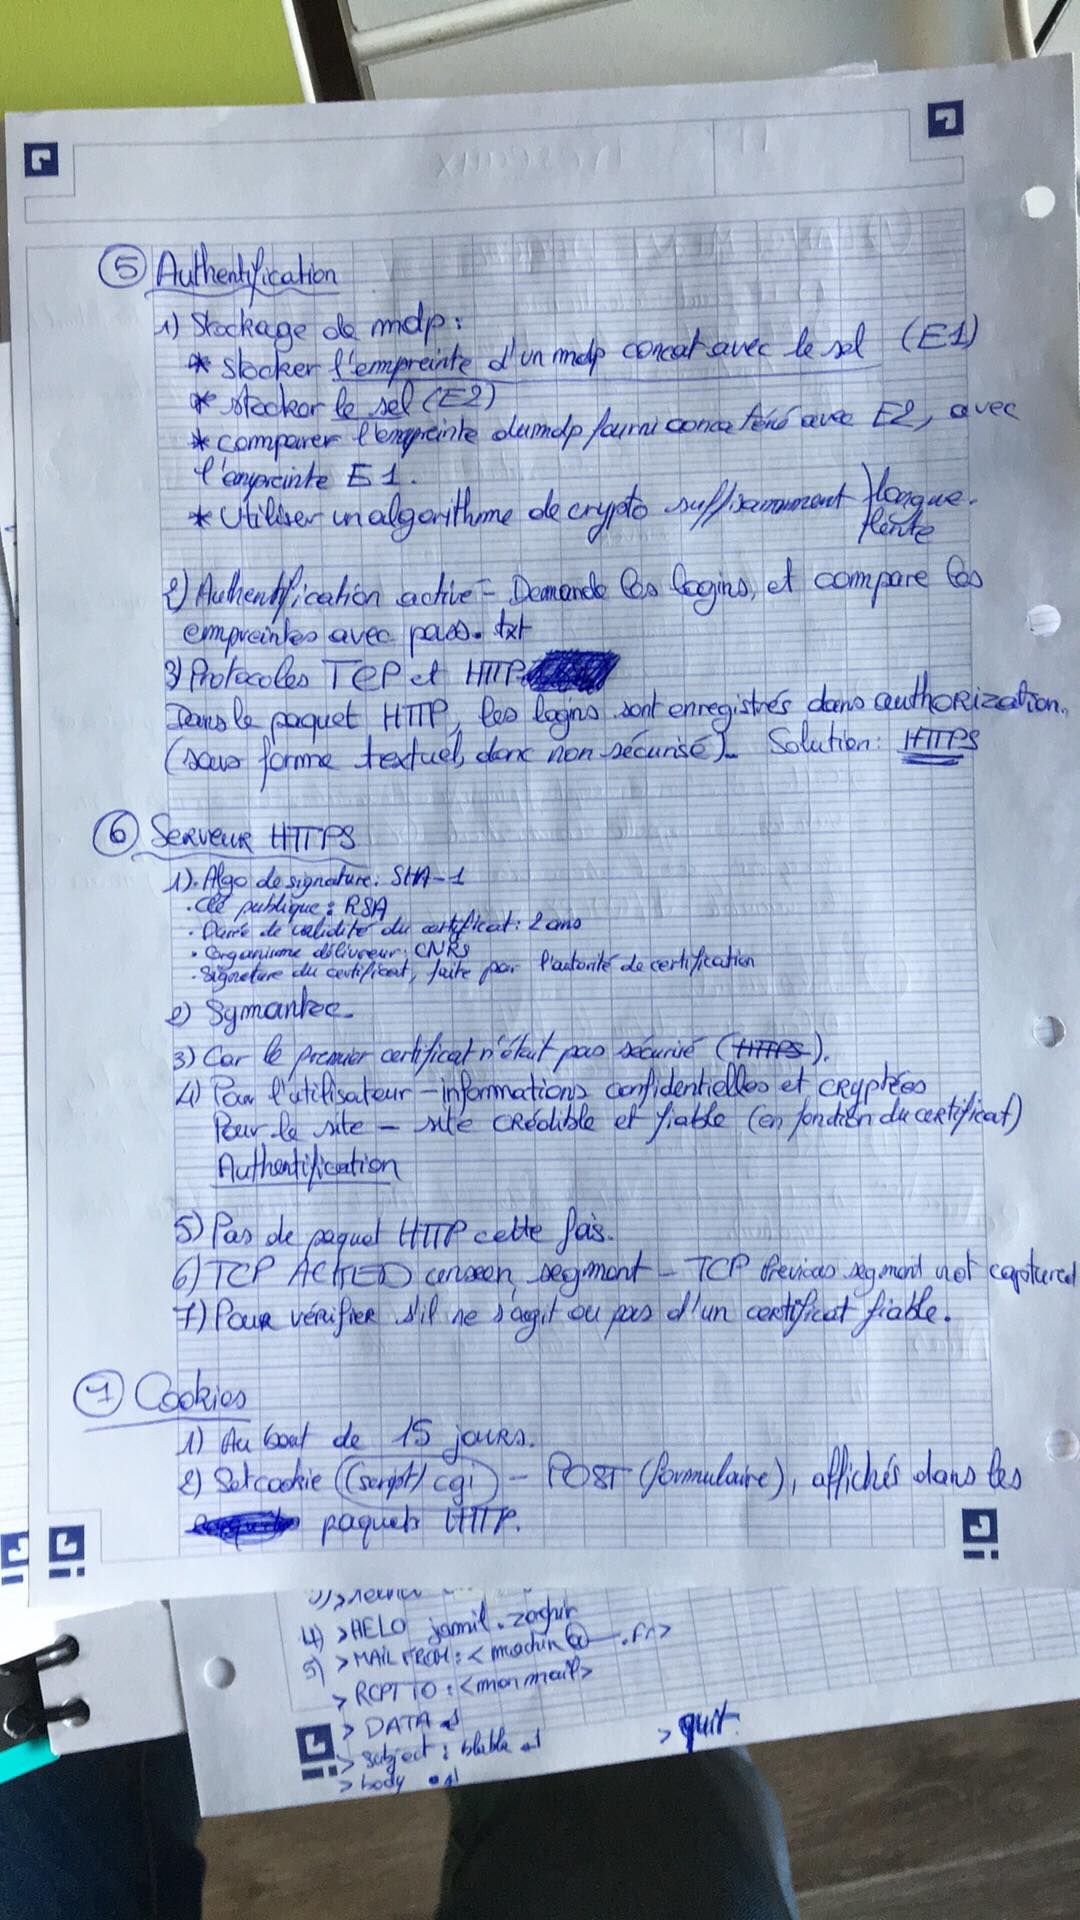 ⑤ Authentification
1) Stockage de mdp :
* stocker l'empreinte d'un mdp concat avec le sel (E1)
* stocker le sel (E2)
* comparer l'empreinte du mdp fourni concaténé avec E2, avec
l'empreinte E1.
* Utiliser un algorithme de crypto suffisamment longue.
lente
2) Authentification active - Demande les logins, et compare les
empreintes avec pass.txt
3) Protocoles TCP et HTTP
Dans le paquet HTTP, les logins sont enregistrés dans authorization.
(sous forme textuel, donc non sécurisé). Solution : HTTPS
⑥ Serveur HTTPS
1) . Algo de signature : SHA-1
. Clé publique : RSA
. Durée de validité du certificat : 2 ans
. Organisme délivreur : CNRS
. Signature du certificat, faite par l'autorité de certification
2) Symantec.
3) Car le premier certificat n'était pas sécurisé (HTTPS).
4) Pour l'utilisateur - informations confidentielles et cryptées
Pour le site - site crédible et fiable (en fonction du certificat)
Authentification
5) Pas de paquet HTTP cette fois.
6) TCP ACKED unseen segment - TCP Previous segment not captured
7) Pour vérifier s'il ne s'agit ou pas d'un certificat fiable.
⑦ Cookies
1) Au bout de 15 jours.
2) Setcookie (script) cgi - POST (formulaire), affichés dans les
paquets HTTP.
4) > HELO jamil.
5) > MAIL FROM : < machin @ .fr>
> RCPT TO : <mon mail>
> DATA
> subject : blabla
> body
> quit